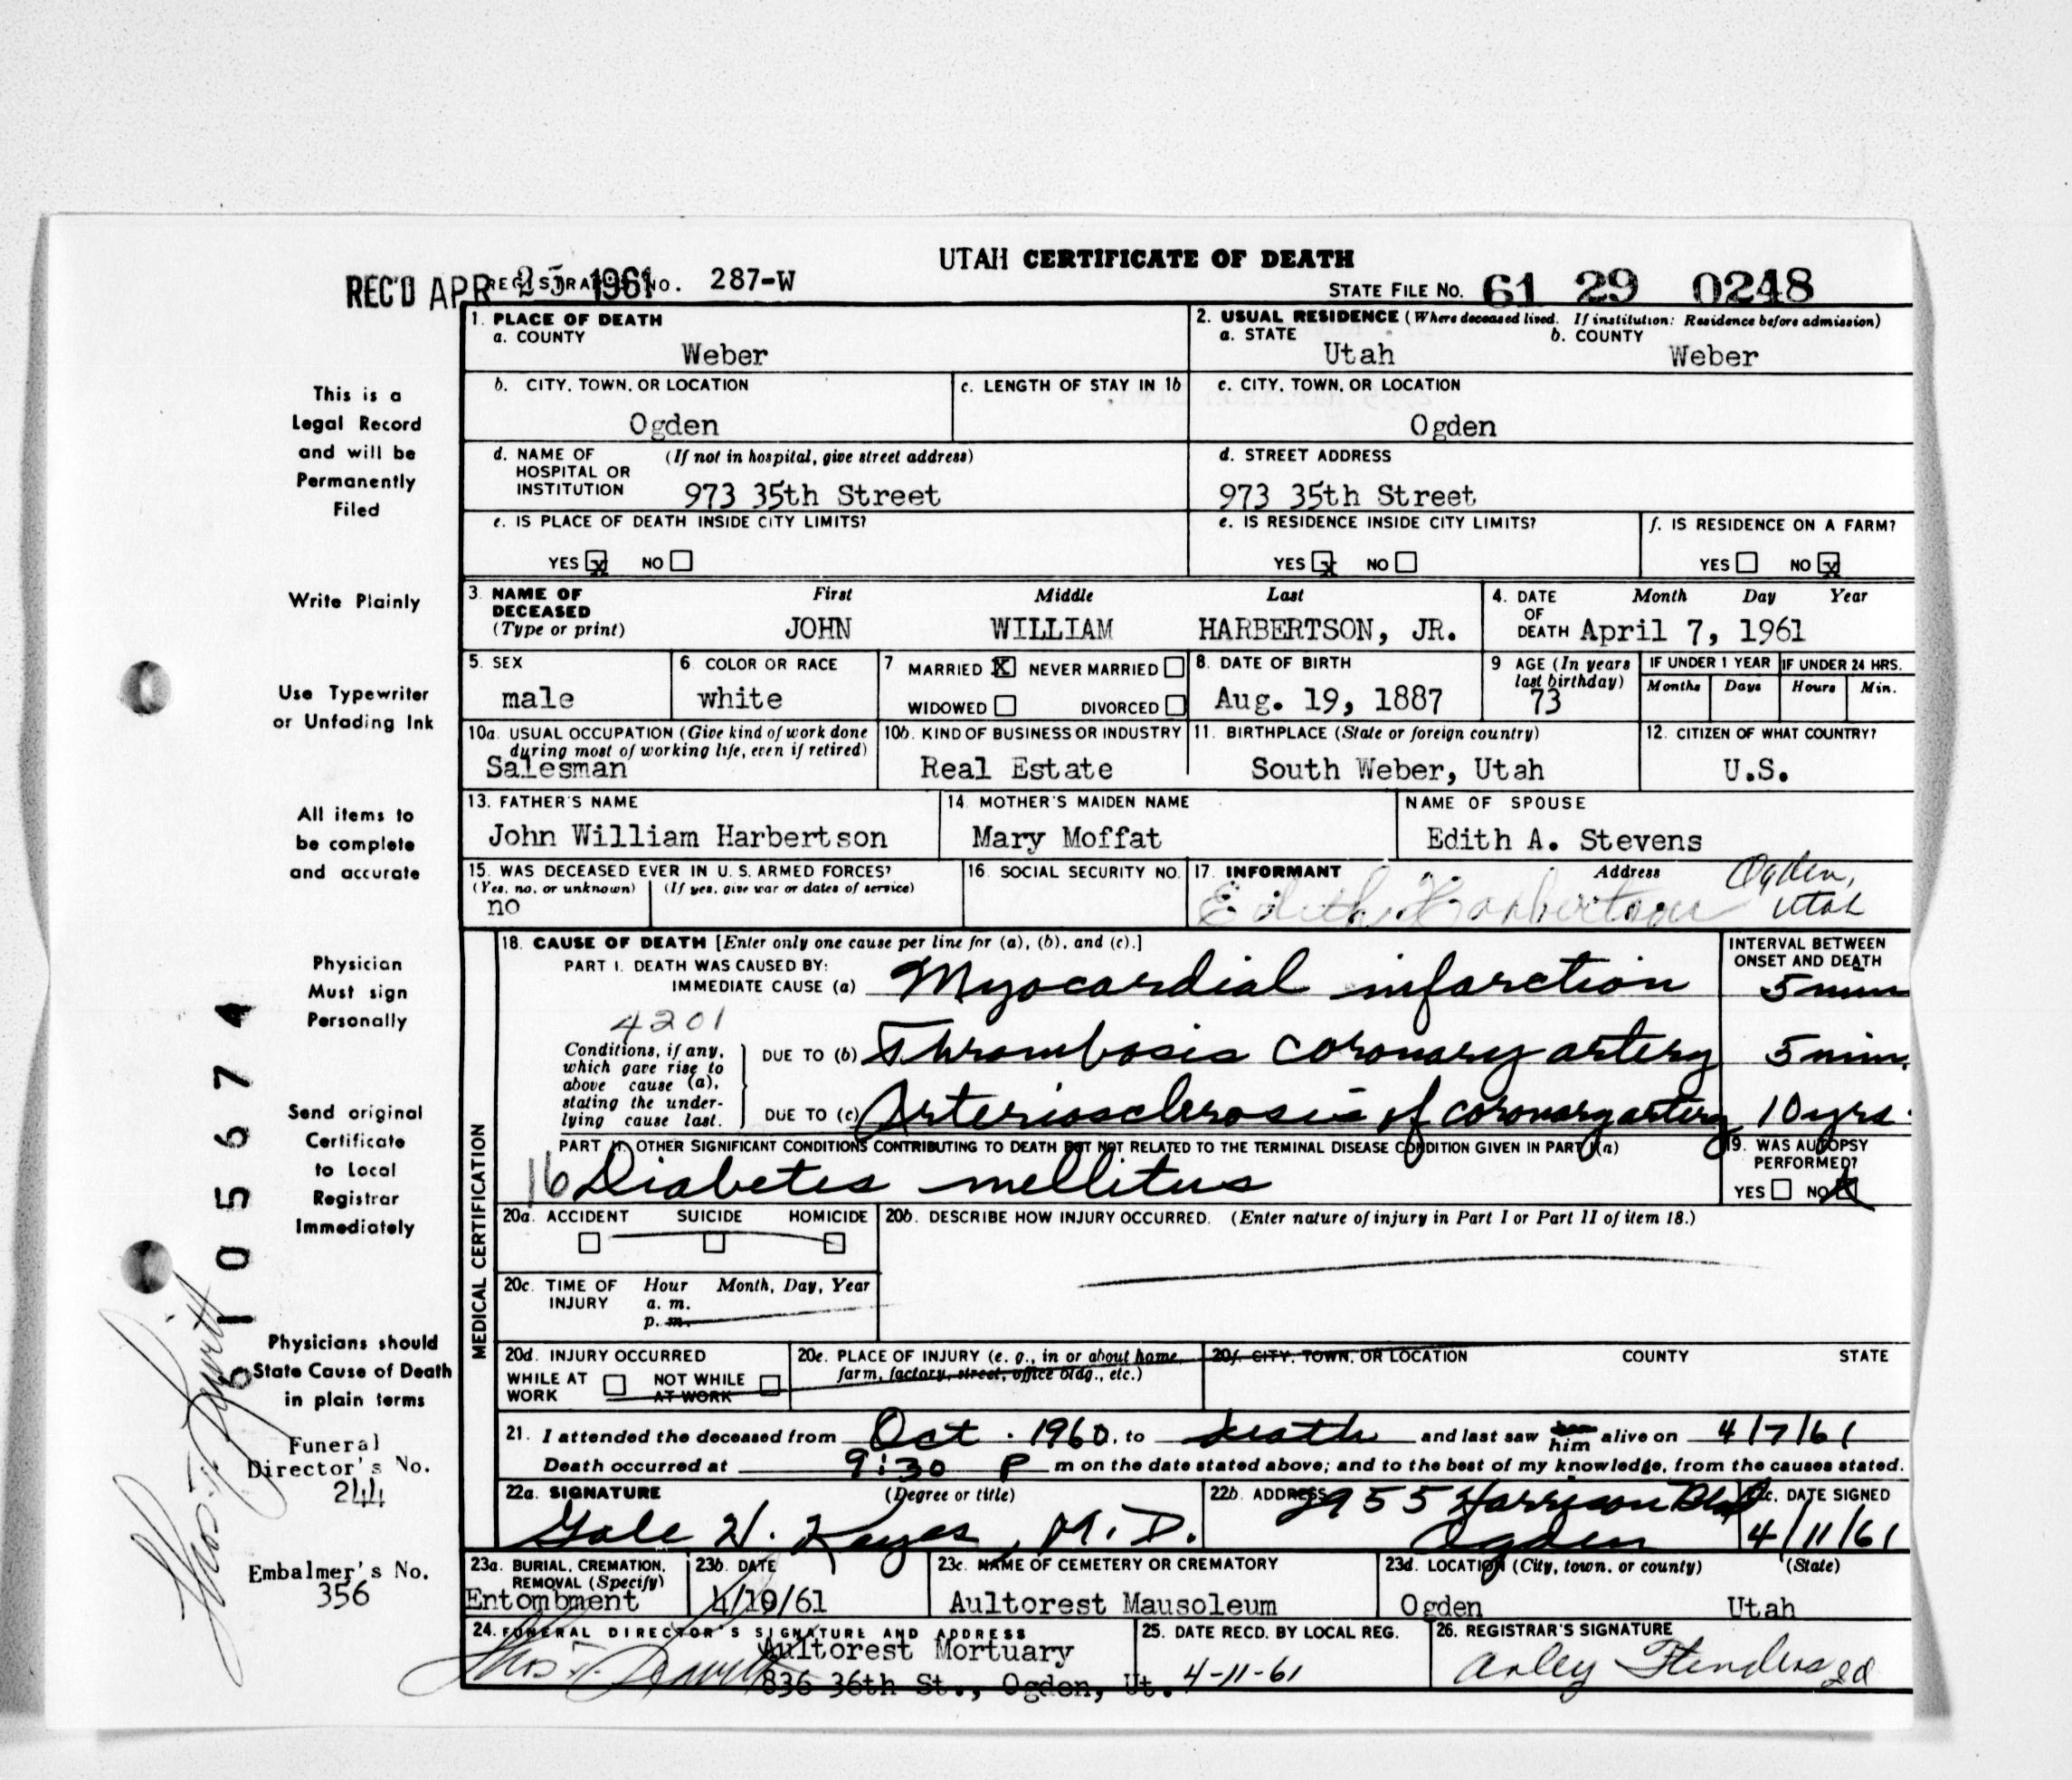 UTAH CERTIFICATE OF DEATH
REC'D APR 25 1961
REGISTRAR'S NO. 287-W
STATE FILE NO. 61 29 0248
1. PLACE OF DEATH
a. COUNTY
Weber
2. USUAL RESIDENCE (Where deceased lived. If institution: Residence before admission)
a. STATE b. COUNTY
Utah Weber
b. CITY, TOWN, OR LOCATION
Ogden
c. LENGTH OF STAY IN 1b
c. CITY, TOWN, OR LOCATION
Ogden
d. NAME OF (If not in hospital, give street address)
HOSPITAL OR
INSTITUTION 973 35th Street
d. STREET ADDRESS
973 35th Street
e. IS PLACE OF DEATH INSIDE CITY LIMITS?
YES x NO
e. IS RESIDENCE INSIDE CITY LIMITS?
YES x NO
f. IS RESIDENCE ON A FARM?
YES NO x
3. NAME OF DECEASED (Type or print)
First Middle Last
JOHN WILLIAM HARBERTSON, JR.
4. DATE OF DEATH Month Day Year
April 7, 1961
5. SEX
male
6. COLOR OR RACE
white
7 MARRIED X NEVER MARRIED
WIDOWED DIVORCED
8. DATE OF BIRTH
Aug. 19, 1887
9 AGE (In years last birthday)
73
IF UNDER 1 YEAR IF UNDER 24 HRS.
Months Days Hours Min.
10a. USUAL OCCUPATION (Give kind of work done
during most of working life, even if retired)
Salesman
10b. KIND OF BUSINESS OR INDUSTRY
Real Estate
11. BIRTHPLACE (State or foreign country)
South Weber, Utah
12. CITIZEN OF WHAT COUNTRY?
U.S.
13. FATHER'S NAME
John William Harbertson
14. MOTHER'S MAIDEN NAME
Mary Moffat
NAME OF SPOUSE
Edith A. Stevens
15. WAS DECEASED EVER IN U. S. ARMED FORCES?
(Yes, no, or unknown) (If yes, give war or dates of service)
no
16. SOCIAL SECURITY NO.
17. INFORMANT Address
Edith Harbertson Ogden,
Utah
18. CAUSE OF DEATH [Enter only one cause per line for (a), (b), and (c).]
INTERVAL BETWEEN
ONSET AND DEATH
PART I. DEATH WAS CAUSED BY:
IMMEDIATE CAUSE (a) Myocardial infarction 5 min
4201
Conditions, if any,
which gave rise to
above cause (a),
stating the under-
lying cause last.
DUE TO (b) Thrombosis coronary artery 5 min.
DUE TO (c) Arteriosclerosis of coronary artery 10 yrs.
PART II. OTHER SIGNIFICANT CONDITIONS CONTRIBUTING TO DEATH BUT NOT RELATED TO THE TERMINAL DISEASE CONDITION GIVEN IN PART I(a)
16 Diabetes mellitus
19. WAS AUTOPSY
PERFORMED?
YES NO X
20a. ACCIDENT SUICIDE HOMICIDE
20b. DESCRIBE HOW INJURY OCCURRED. (Enter nature of injury in Part I or Part II of item 18.)
20c. TIME OF INJURY Hour Month, Day, Year
a. m.
p. m.
20d. INJURY OCCURRED
WHILE AT WORK NOT WHILE AT WORK
20e. PLACE OF INJURY (e. g., in or about home,
farm, factory, street, office bldg., etc.)
20f. CITY, TOWN, OR LOCATION COUNTY STATE
21. I attended the deceased from Oct. 1960, to death and last saw him alive on 4/7/61
Death occurred at 9:30 P m on the date stated above; and to the best of my knowledge, from the causes stated.
22a. SIGNATURE (Degree or title)
Gale H. Keyes, M. D.
22b. ADDRESS
2955 Harrison Blvd
Ogden
22c. DATE SIGNED
4/11/61
23a. BURIAL, CREMATION,
REMOVAL (Specify)
Entombment
23b. DATE
4/10/61
23c. NAME OF CEMETERY OR CREMATORY
Aultorest Mausoleum
23d. LOCATION (City, town, or county) (State)
Ogden Utah
24. FUNERAL DIRECTOR'S SIGNATURE AND ADDRESS
Aultorest Mortuary
836 36th St., Ogden, Ut.
25. DATE RECD. BY LOCAL REG.
4-11-61
26. REGISTRAR'S SIGNATURE
Arley Flinders
MEDICAL CERTIFICATION
This is a
Legal Record
and will be
Permanently
Filed
Write Plainly
Use Typewriter
or Unfading Ink
All items to
be complete
and accurate
Physician
Must sign
Personally
Send original
Certificate
to Local
Registrar
Immediately
Physicians should
State Cause of Death
in plain terms
Funeral
Director's No.
244
Embalmer's No.
356
6105674